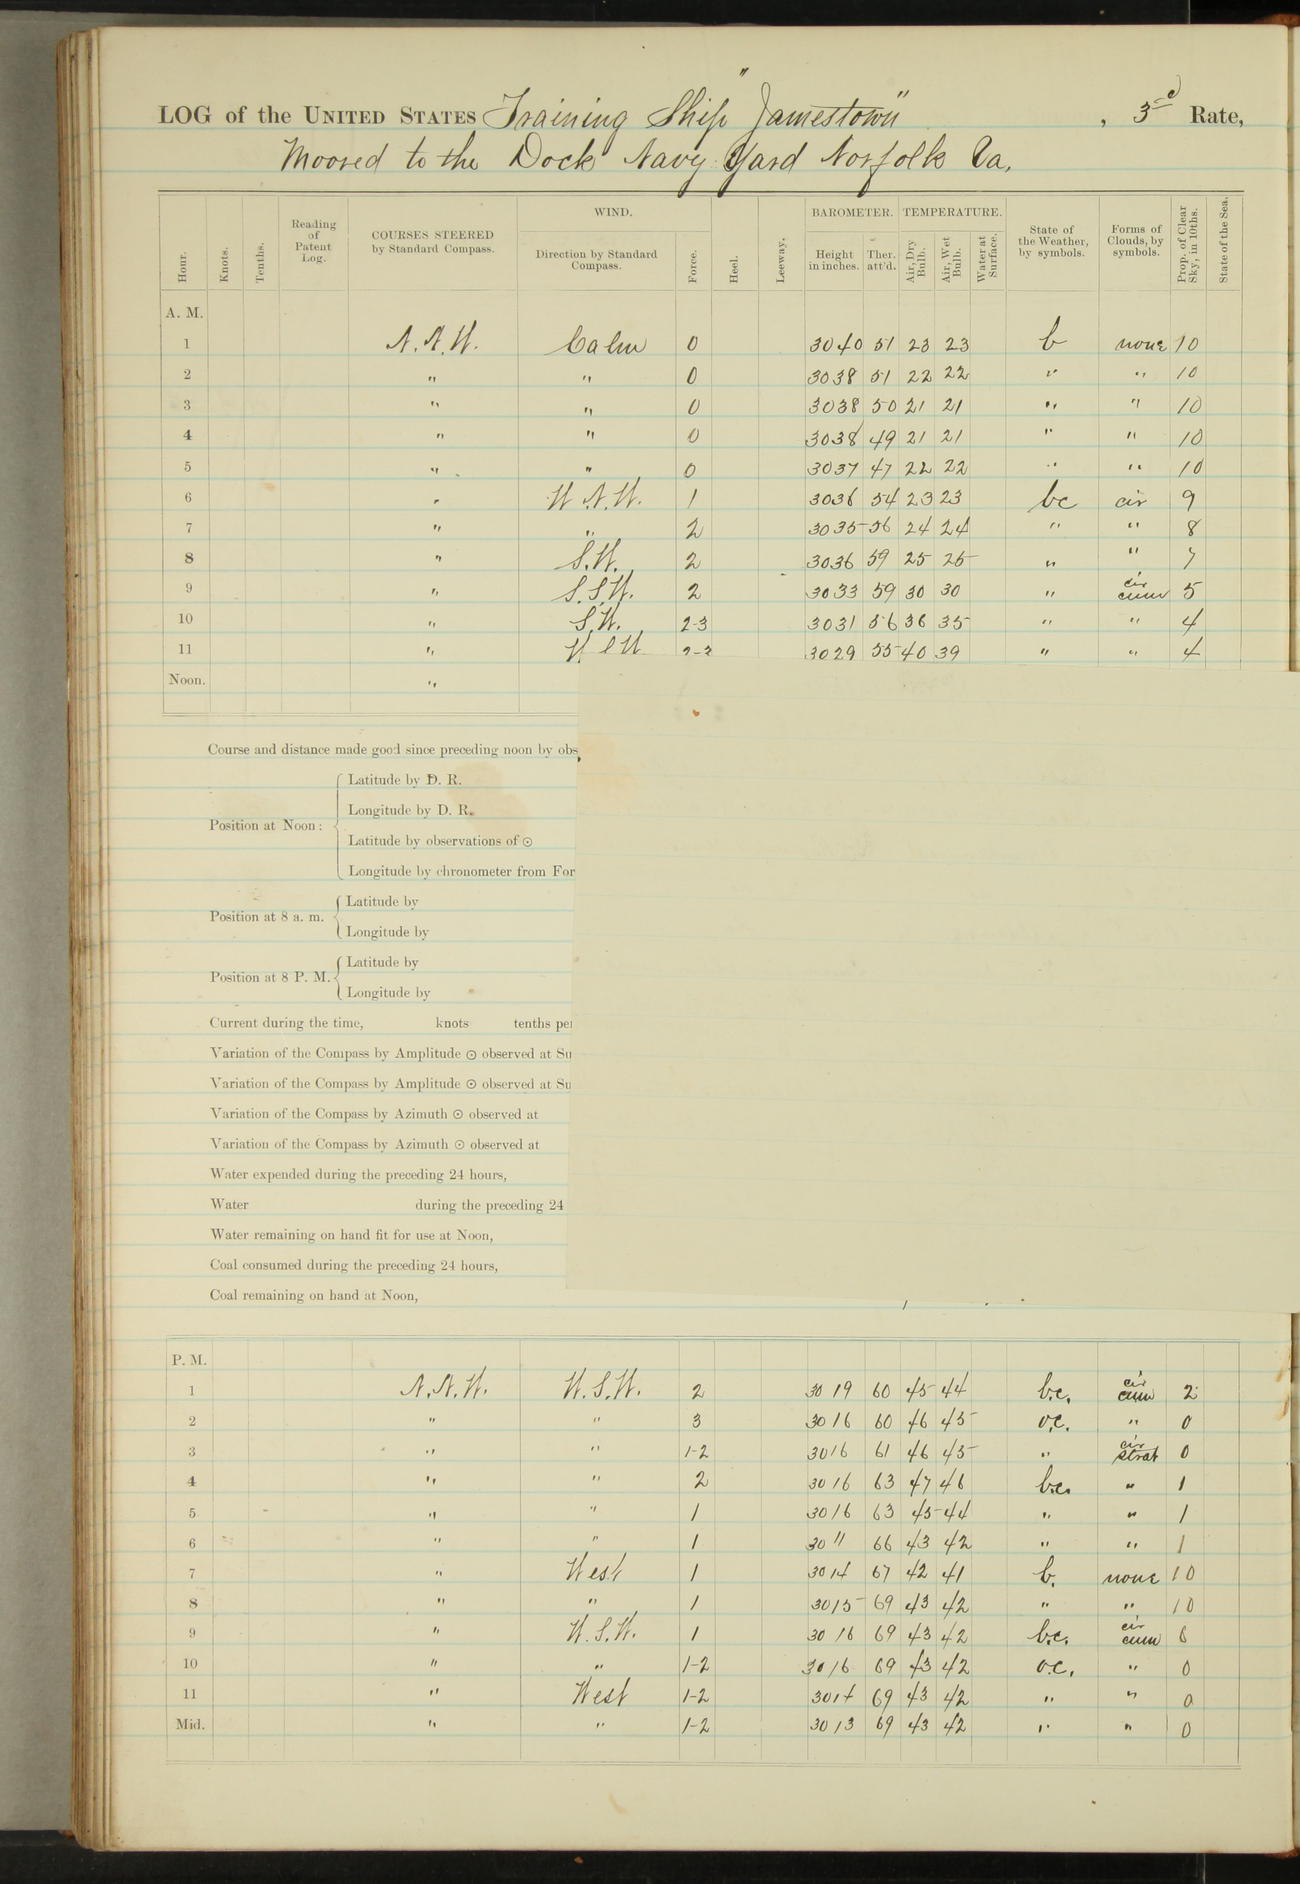 LOG of the UNITED STATES Training Ship "Jamestown", 3rd Rate,
Moored to the Dock Navy Yard Norfolk Va.
Hour. Knots. Tenths. Reading of Patent Log. COURSES STEERED by Standard Compass. WIND. Direction by Standard Compass. Force. Heel. Leeway. BAROMETER. Height in inches. Ther. att'd. TEMPERATURE. Air, Dry Bulb. Air, Wet Bulb. Water at Surface. State of the Weather, by symbols. Forms of Clouds, by symbols. Prop. of Clear Sky, in 10ths. State of the Sea.
A. M.
1 N.N.W. Calm 0 3040 51 23 23 b none 10
2 " " 0 3038 51 22 22 " " 10
3 " " 0 3038 50 21 21 " " 10
4 " " 0 3038 49 21 21 " " 10
5 " " 0 3037 47 22 22 " " 10
6 " W.N.W. 1 3036 54 23 23 bc cir 9
7 " " 2 3035 56 24 24 " " 8
8 " S.W. 2 3036 59 25 25 " " 7
9 " S.S.W. 2 3033 59 30 30 " cir cum 5
10 " S.W. 2-3 3031 56 36 35 " " 4
11 " W.S.W. 2-3 3029 55 40 39 " " 4
Noon. "
Course and distance made good since preceding noon by obs
Position at Noon:
Latitude by D. R.
Longitude by D. R.
Latitude by observations of ☉
Longitude by chronometer from For
Position at 8 a. m.
Latitude by
Longitude by
Position at 8 P. M.
Latitude by
Longitude by
Current during the time, knots tenths per
Variation of the Compass by Amplitude ☉ observed at Su
Variation of the Compass by Amplitude ☉ observed at Su
Variation of the Compass by Azimuth ☉ observed at
Variation of the Compass by Azimuth ☉ observed at
Water expended during the preceding 24 hours,
Water during the preceding 24
Water remaining on hand fit for use at Noon,
Coal consumed during the preceding 24 hours,
Coal remaining on hand at Noon,
P. M.
1 N.N.W. W.S.W. 2 30 19 60 45 44 b.c. cir cum 2
2 " " 3 30 16 60 46 45 o.c. " 0
3 " " 1-2 3016 61 46 45 " cir strat 0
4 " " 2 30 16 63 47 46 b.c. " 1
5 " " 1 30 16 63 45 44 " " 1
6 " " 1 30 11 66 43 42 " " 1
7 " West 1 30 14 67 42 41 b. none 10
8 " " 1 3015 69 43 42 " " 10
9 " W.S.W. 1 30 16 69 43 42 b.c. cir cum 6
10 " " 1-2 3016 69 43 42 o.c. " 0
11 " West 1-2 3014 69 43 42 " " 0
Mid. " " 1-2 30 13 69 43 42 " " 0